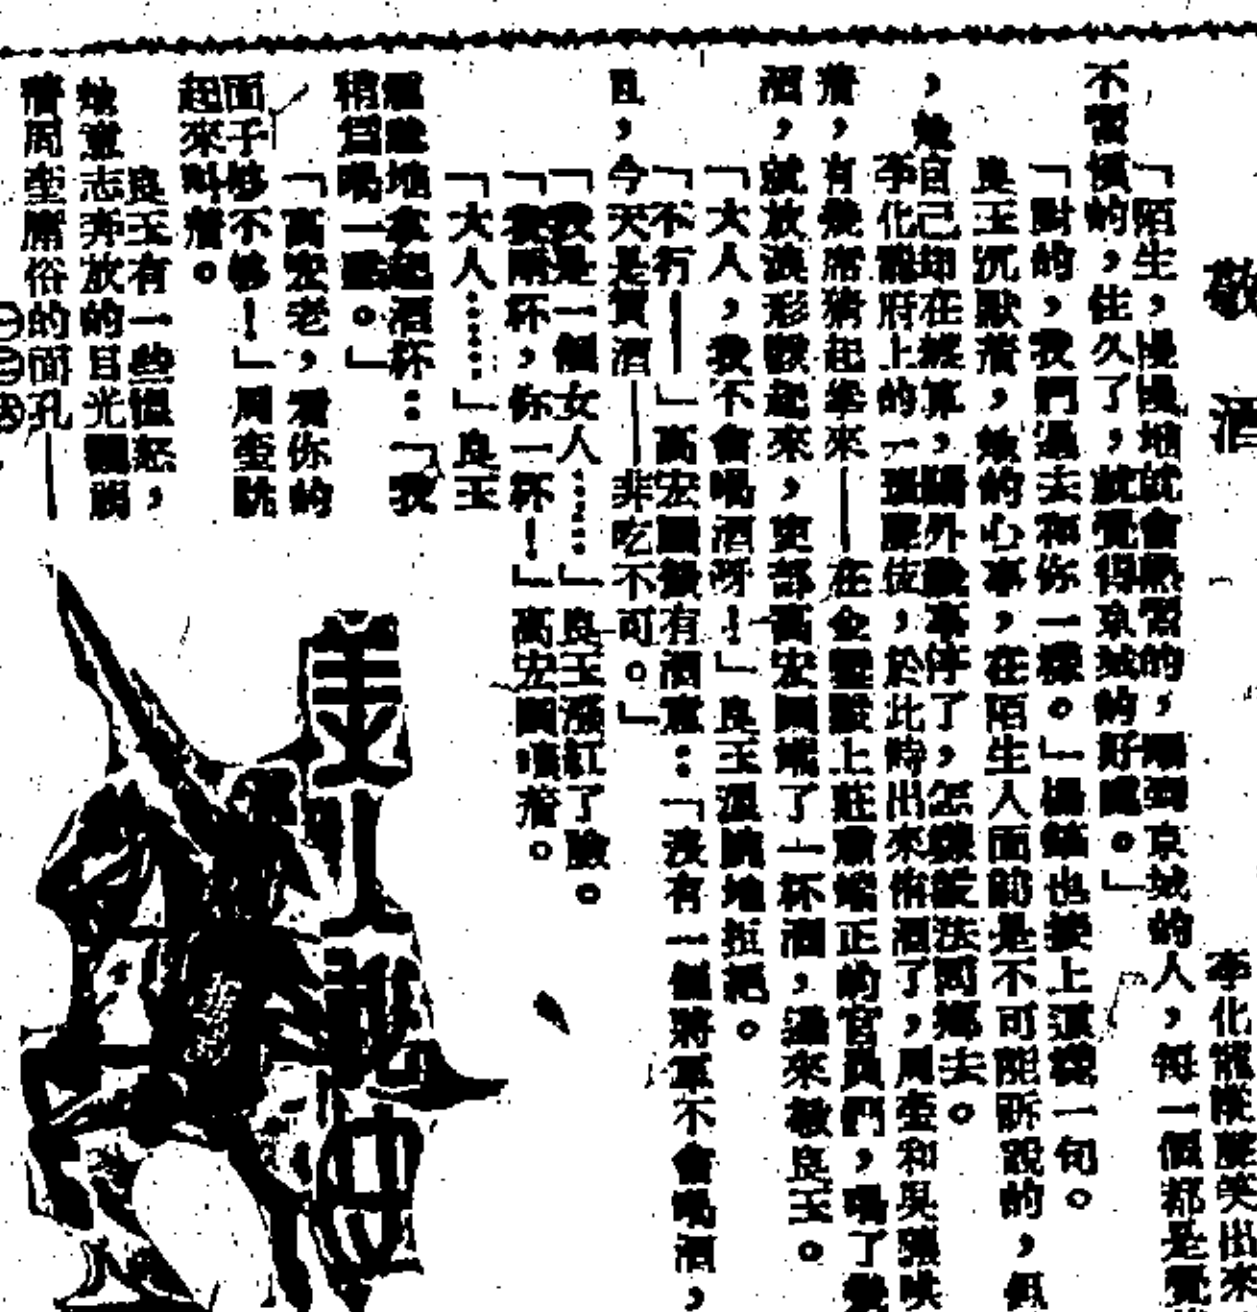 敬酒
李化龍陰險笑出來
「陌生，慢慢地就會熟習的，剛到京城的人，每一個都是覺
不習慣的，住久了，就覺得京城的好處。」
「對的，我們過去和你一樣。」楊鎬也接上這樣一句。
良玉沉默着，她的心事，在陌生人面前是不可能訴說的，但
，她自己却在盤算，關外戰事停了，怎樣設法回鄉去。
李化龍府上的一張伎，於此時出來侑酒了，周奎和吳
着，有幾席猜起拳來——在金鑾殿上莊嚴端正的官員們，喝了幾
酒，就放浪形骸起來，吏部高宏圖斟了一杯酒，過來敬良玉。
「大人，我不會喝酒呀！」良玉溫婉地拒絕。
「不行——」高宏圖頗有酒意：「沒有一個將軍不會喝酒，
且，今天是賀酒——非吃不可。」
「我是一個女人……」良玉漲紅了臉。
「我兩杯，你一杯！」高宏圖嚷着。
「大人……」良玉
尷尬地拿起酒杯：「我
稍爲喝一點。」
「高宏老，看你的
面子夠不夠！」周奎跳
起來叫着。
良玉有一些慍怒，
她意志奔放的目光飄
着周奎庸俗的面孔——